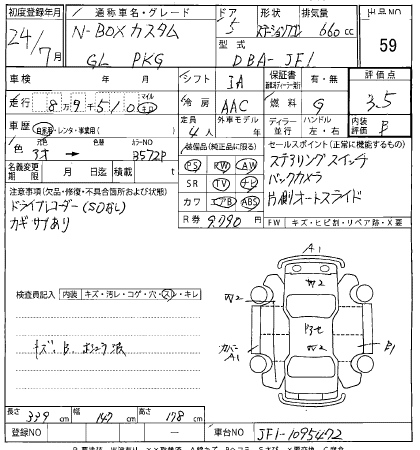 初度登録年月 通称車名・グレード ドア 形状 排気量 出品NO
24/7月 N-BOXカスタム 5 ステーションワゴン 660cc 59
GL PKG 型式 DBA-JF1
車検 年 月 シフト IA 保証書 有・無 評価点
走行 8万9千510 マイル キロ 冷房 AAC 燃料 G 3.5
車歴 自家用・レンタ・事業用( ) 定員 4人 外車モデル年 ディーラー 並行 ハンドル 左・右 内装評価 B
色 元色 色替 カラーNO B572P
名義変更期限 月 日迄 積載 kg
装備品(純正品に限る)
PS PW AW
SR TV ナビ
カワ エアB ABS
R券 9,790円
セールスポイント(正常に機能するもの)
ステアリングスイッチ
バックカメラ
片側オートスライド
FW キズ・ヒビ割・リペア跡・X要
注意事項(欠品・修復・不具合箇所および状態)
ドライブレコーダー(SDなし)
カギ サブあり
検査員記入 内装 キズ・汚レ・コゲ・穴・スレ・キレ
キズ、B、
A1
W2
W2
カバーA1
B1
長さ 339cm 幅 147cm 高さ 178cm
登録NO 車台NO JF1-1095472